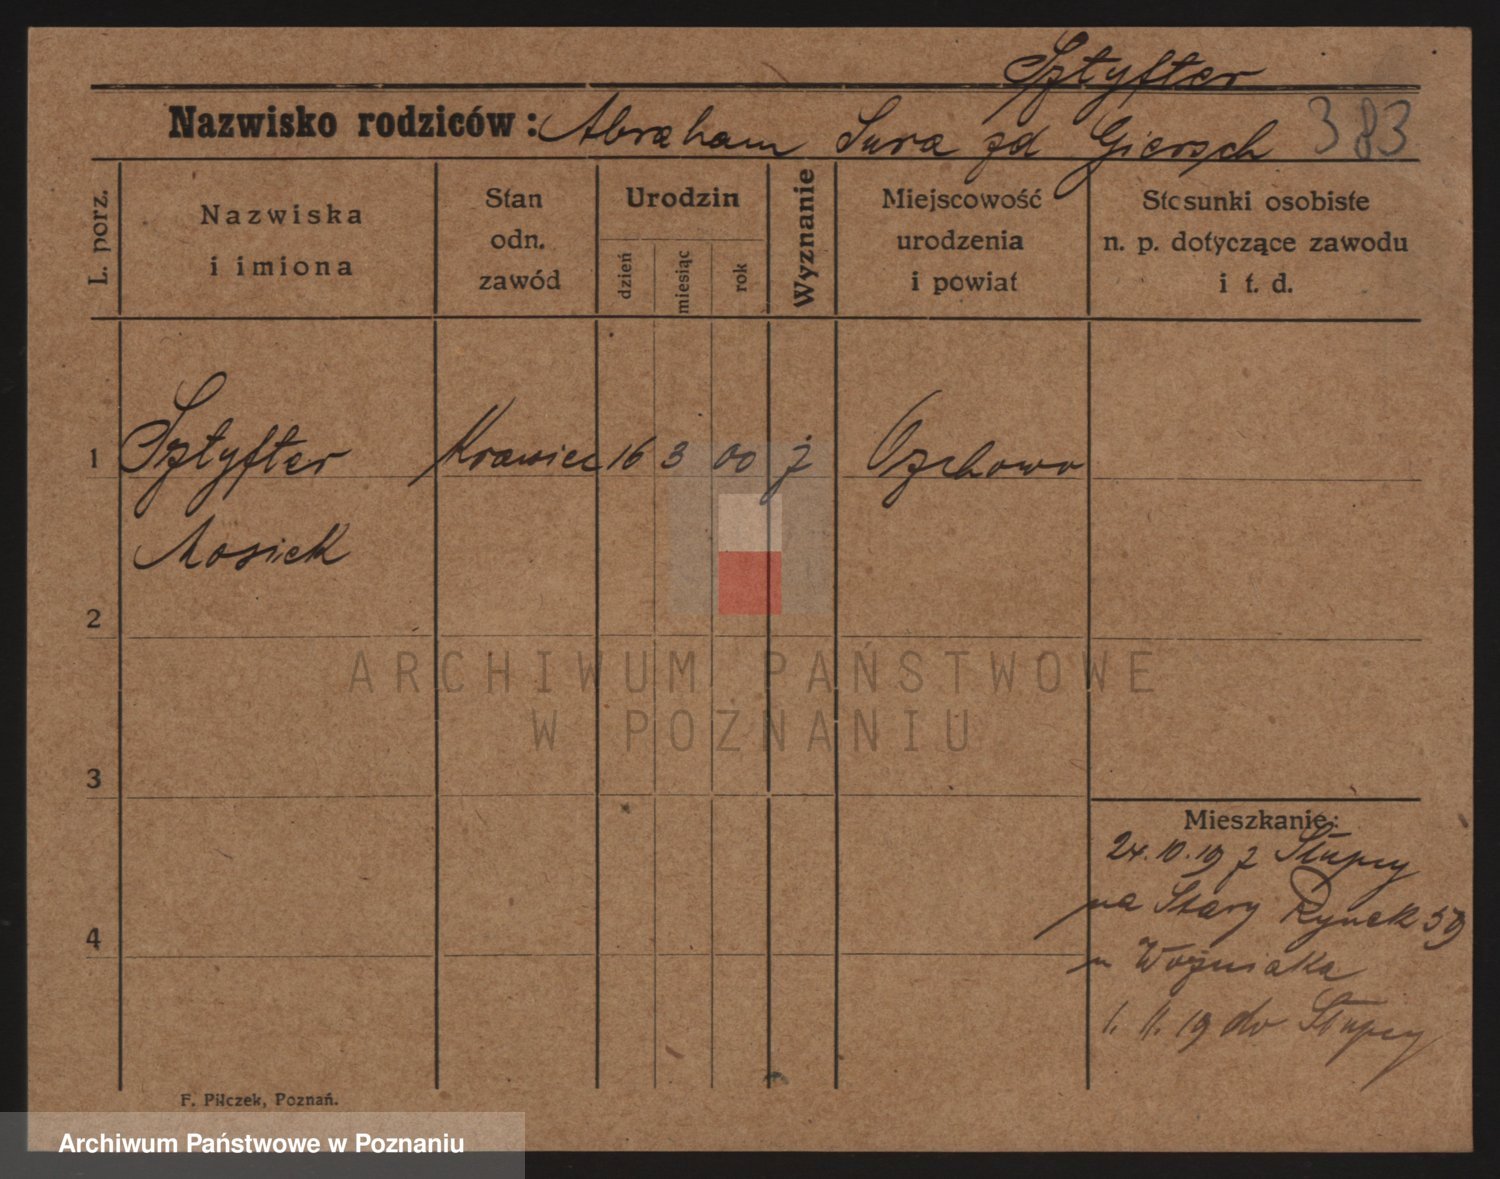 Sztyfter
Nazwisko rodziców: Abraham Sura zd Giersch 383
L. porz.
Nazwiska
i imiona
Stan
odn.
zawód
Urodzin
dzień
miesiąc
rok
Wyznanie
Miejscowość
urodzenia
i powiat
Stosunki osobiste
n. p. dotyczące zawodu
i t. d.
1 Sztyfter Krawiec 16 3 00 ż
Mosiek
2
ARCHIWUM PAŃSTWOWE
W POZNANIU
3
Mieszkanie:
24.10.19 z Słupcy
na Stary Rynek 59
4
u Woźniaka
1. 11. 19 do Słupcy
F. Pilczek, Poznań.
Archiwum Państwowe w Poznaniu